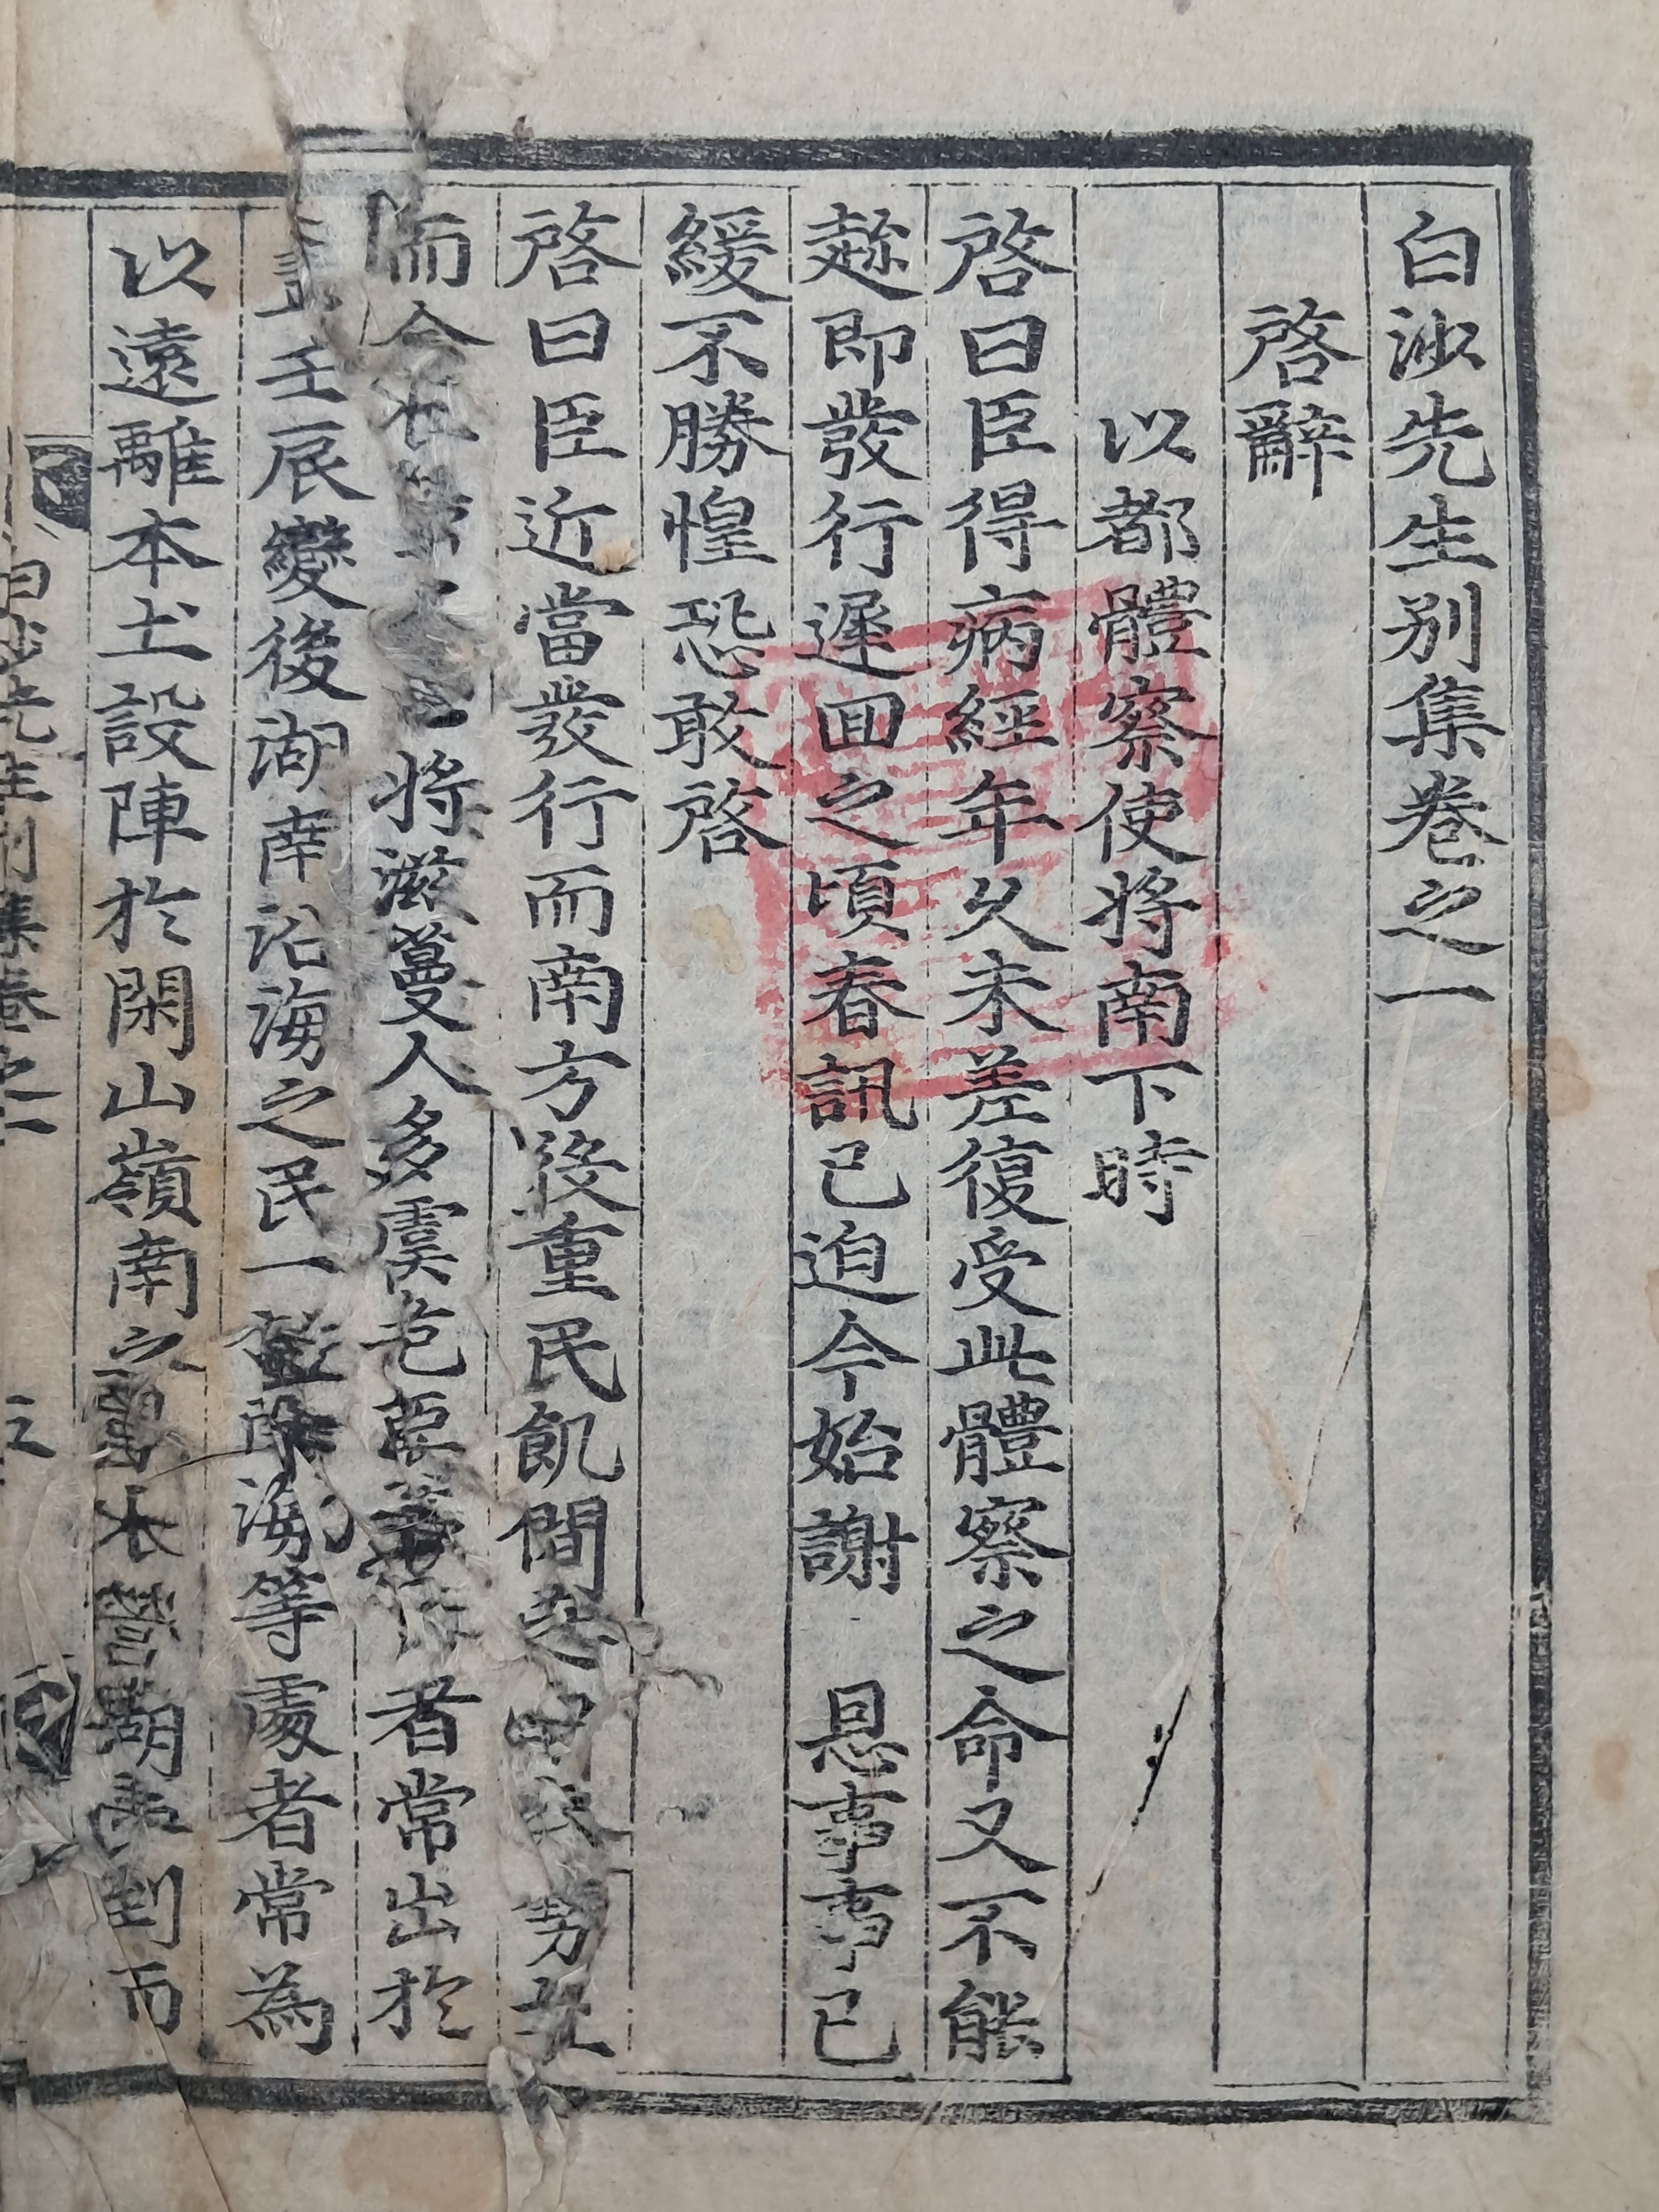 白沙先生別集卷之一
啓辭
以都體察使將南下時
啓曰臣得病經年久未差復受此體察之命又不能
趂即發行遲回之頃春訊已迫今始謝 恩事事已
緩不勝惶恐敢啓
啓曰臣近當發行而南方役重民飢間
而今將滋蔓人多虞者常出於
壬辰變後湖南沿海之民一海等處者常為
以遠離本土設陣於閑山嶺南之湖南到而
白沙先生別集卷之一